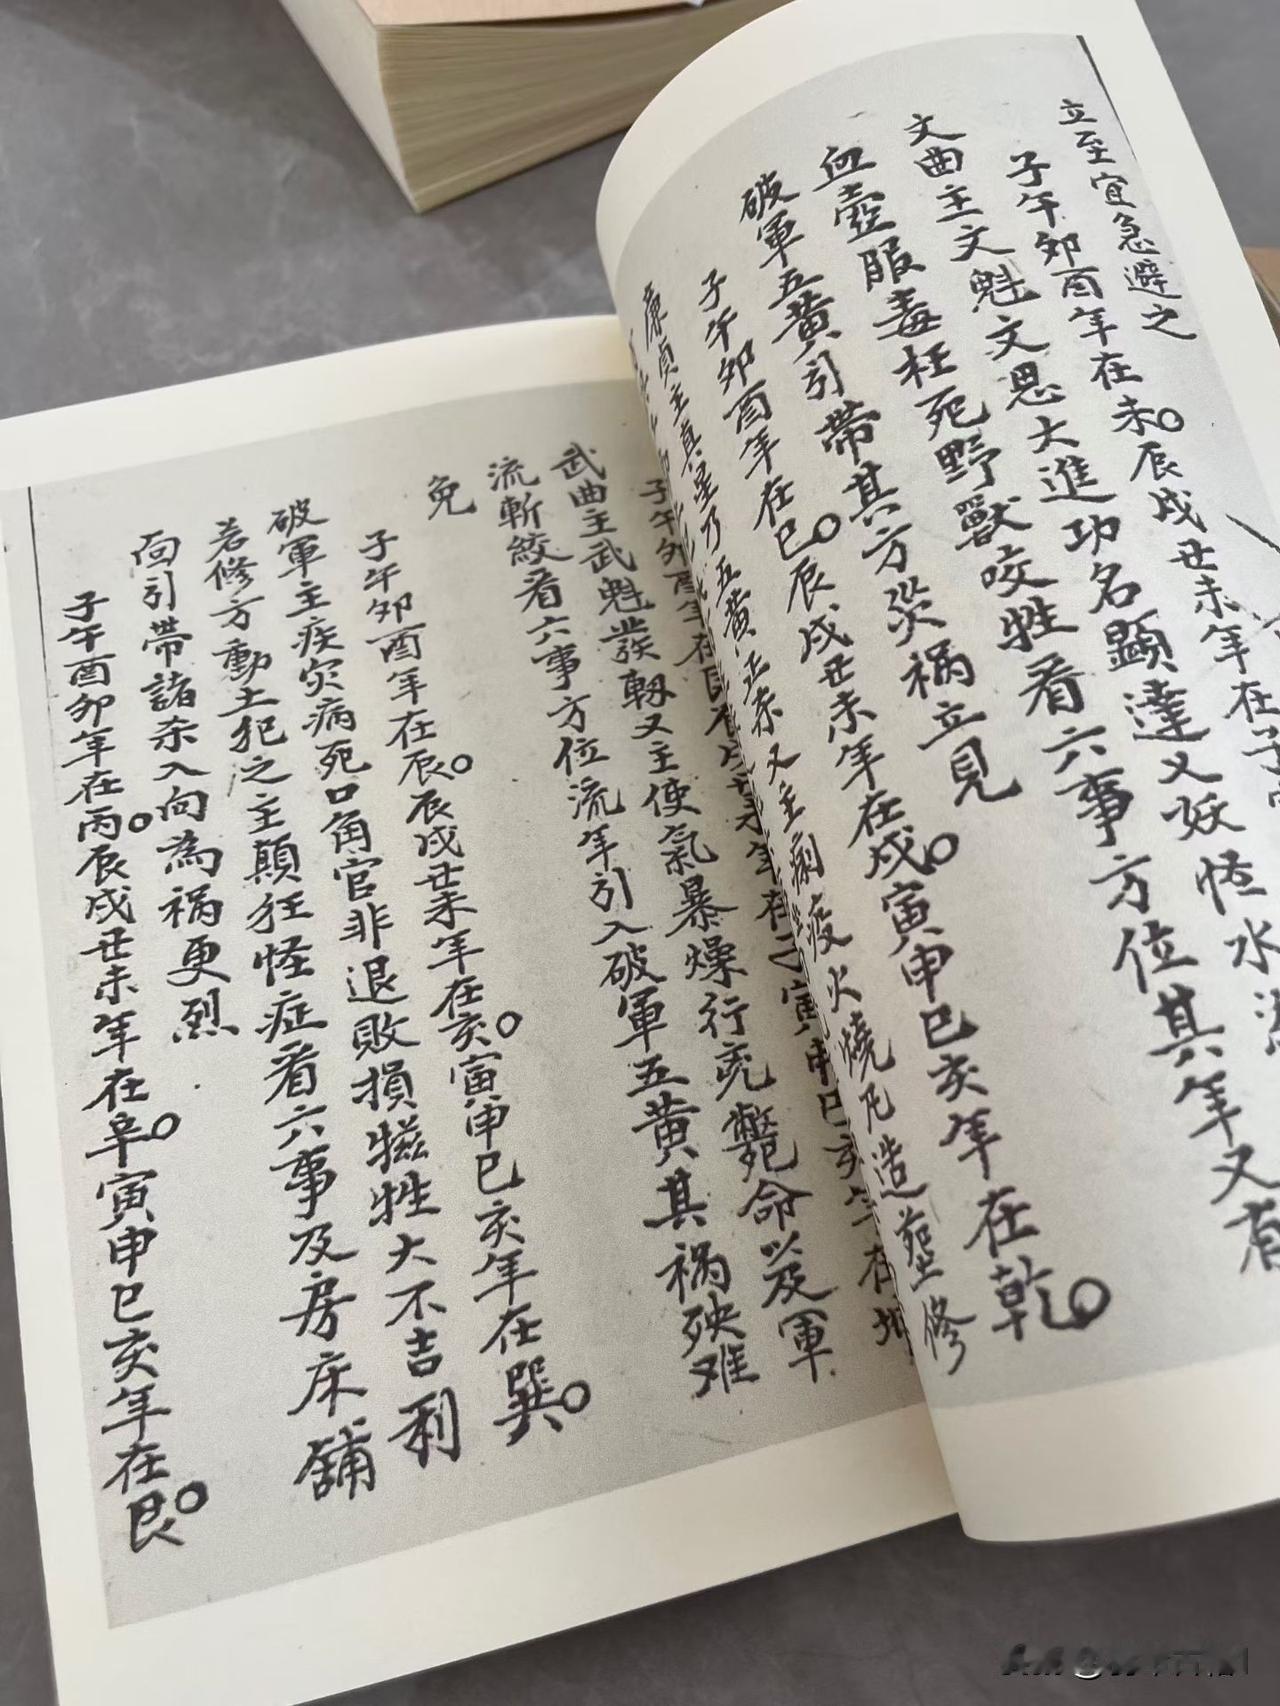 立至宜急避之
子午卯酉年在未。辰戌丑未年在子寅
文曲主文魁文思大進功名顯達又妖怪水
血壺服毒枉死野獸咬牲看六事方位其年又有
破軍五黃引帶其方災禍立見
子午卯酉年在巳。辰戌丑未年在戌。寅申巳亥年在乾。
廉貞主真星乃五黃正杀又主痢疫火燒瓦造塋修
子午卯酉年在艮辰戌丑未年在子寅申巳亥年在坤
武曲主武魁發軔又主使氣暴燥行兇斃命以及軍
流斬絞看六事方位流年引入破軍五黃其禍殃难
免
子午卯酉年在辰。辰戌丑未年在亥。寅申巳亥年在巽。
破軍主疾災病死口角官非退敗損犠牲大不吉利
若修方動土犯之主顛狂怪症看六事及房床舖
向引帶諸杀入向為禍更烈
子午酉卯年在丙。辰戌丑未年在辛。寅申巳亥年在艮。